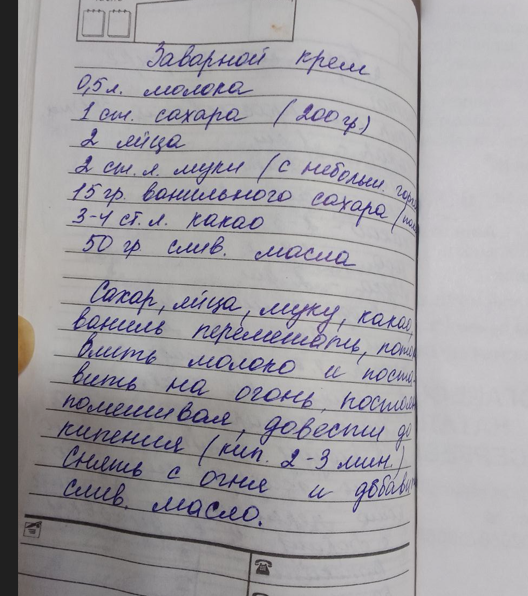 Заварной крем
0,5 л. молока
1 ст. сахара (200 гр.)
2 яйца
2 ст. л. муки (с небольш.
15 гр. ванильного сахара
3-4 ст. л. какао
50 гр слив. масла
Сахар, яйца, муку, какао,
ваниль перемешать,
Влить молоко и поста-
вить на огонь,
помешивая, довести до
кипения (кип. 2-3 мин.)
Снять с огня и добавит
слив. масло.